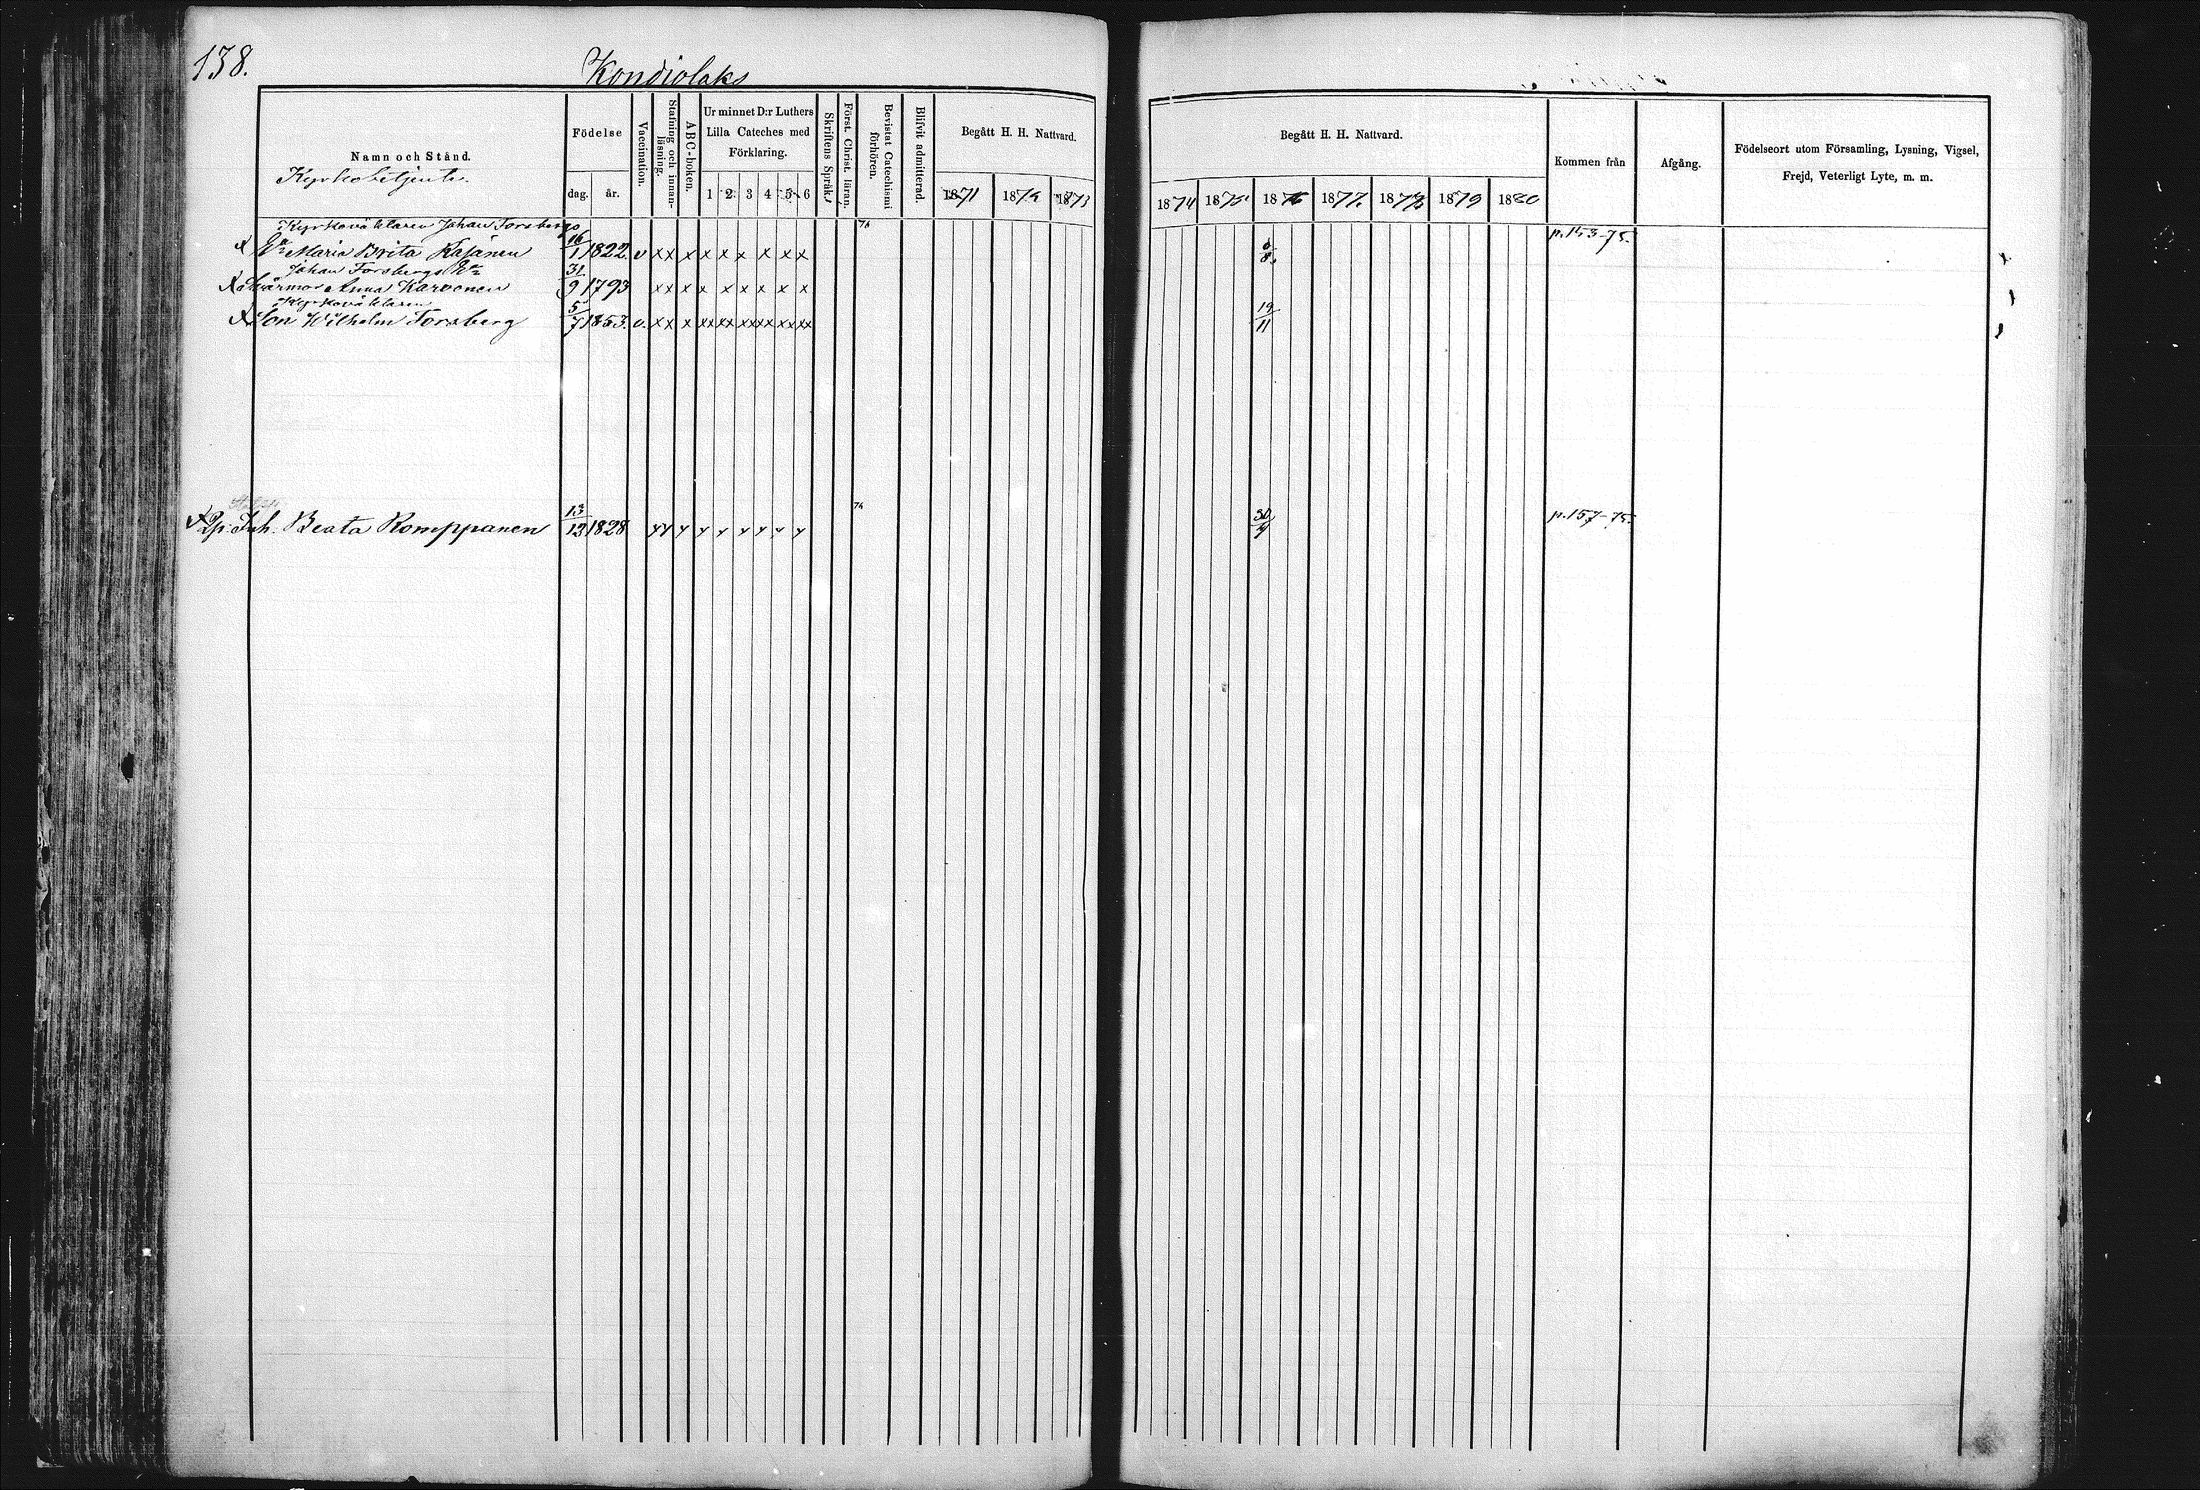 138.
Kondiolaks
Namn och Stånd.
Kyrkobetjente.
Födelse
dag.
år.
Vaccination.
Stafning och innan-
läsning.
ABC-boken.
Ur minnet D:r Luthers
Lilla Cateches med
Förklaring.
1 2 3 4 5 6
Skriftens Språk.
Först. Christ. läran.
Bevistat Catechismi
förhören.
Blifvit admitterad.
Begått H. H. Nattvard.
1871 1872 1873
Begått H. H. Nattvard.
1874 1875 1876 1877 1878 1879 1880
Kommen från
Afgång.
Födelseort utom Församling, Lysning, Vigsel,
Frejd, Veterligt Lyte, m. m.
Kyrkoväktaren Johan Forsbergs 76 p. 153-75.
x Ea Maria Brita Kasänen 16/1 1822. v xx x x x x x x x 6/8.
Johan Forsbergs Ea
x Anna Karvonen 31/9 1793 xx x x x x x x x
Kyrkoväktaren
x Son Wilhelm Forsberg 5/7 1853. v. xx x xx xx xx xx xx xx 19/11
x Inh. Beata Romppanen 13/12 1828 xx x x x x x x x 76 30/4 p. 157-75.